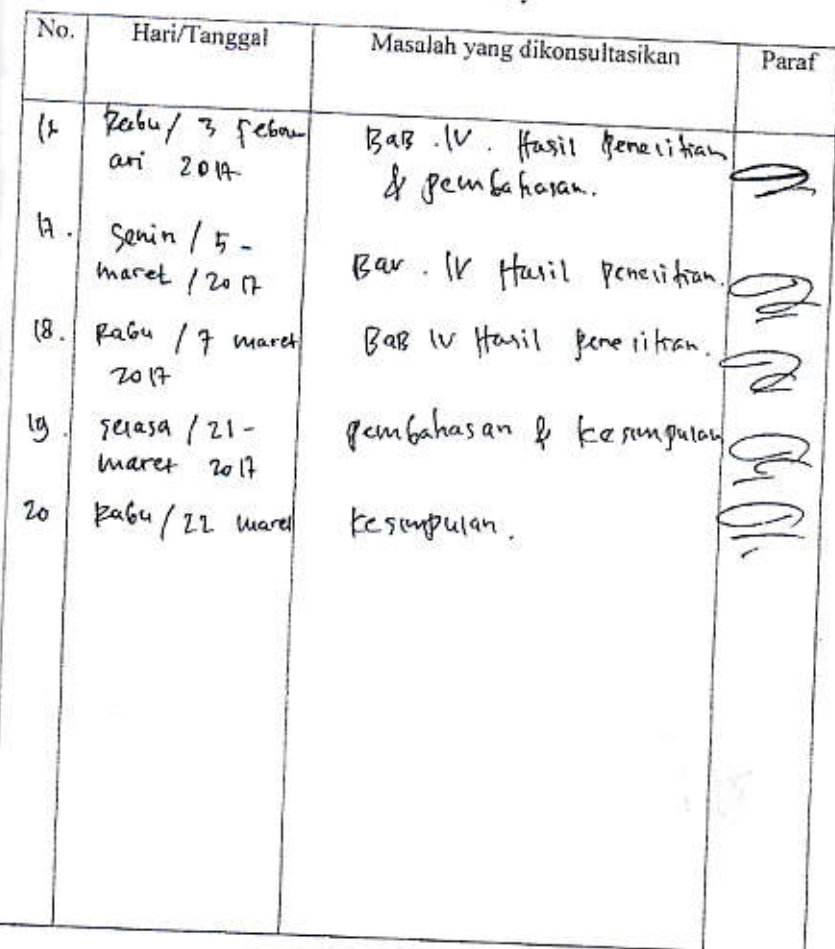 No. Hari/Tanggal Masalah yang dikonsultasikan Paraf
Rabu / 3 Febru BAB . IV . Hasil Penelitian
ari 2017 & pembahasan.
17. Senin / 5 -
maret / 2017 Bav . IV Hasil penelitian.
18. Rabu / 7 maret BAB IV Hasil penelitian.
2017
19. selasa / 21 - pembahasan & kesimpulan
maret 2017
20 Rabu / 22 maret kesimpulan.